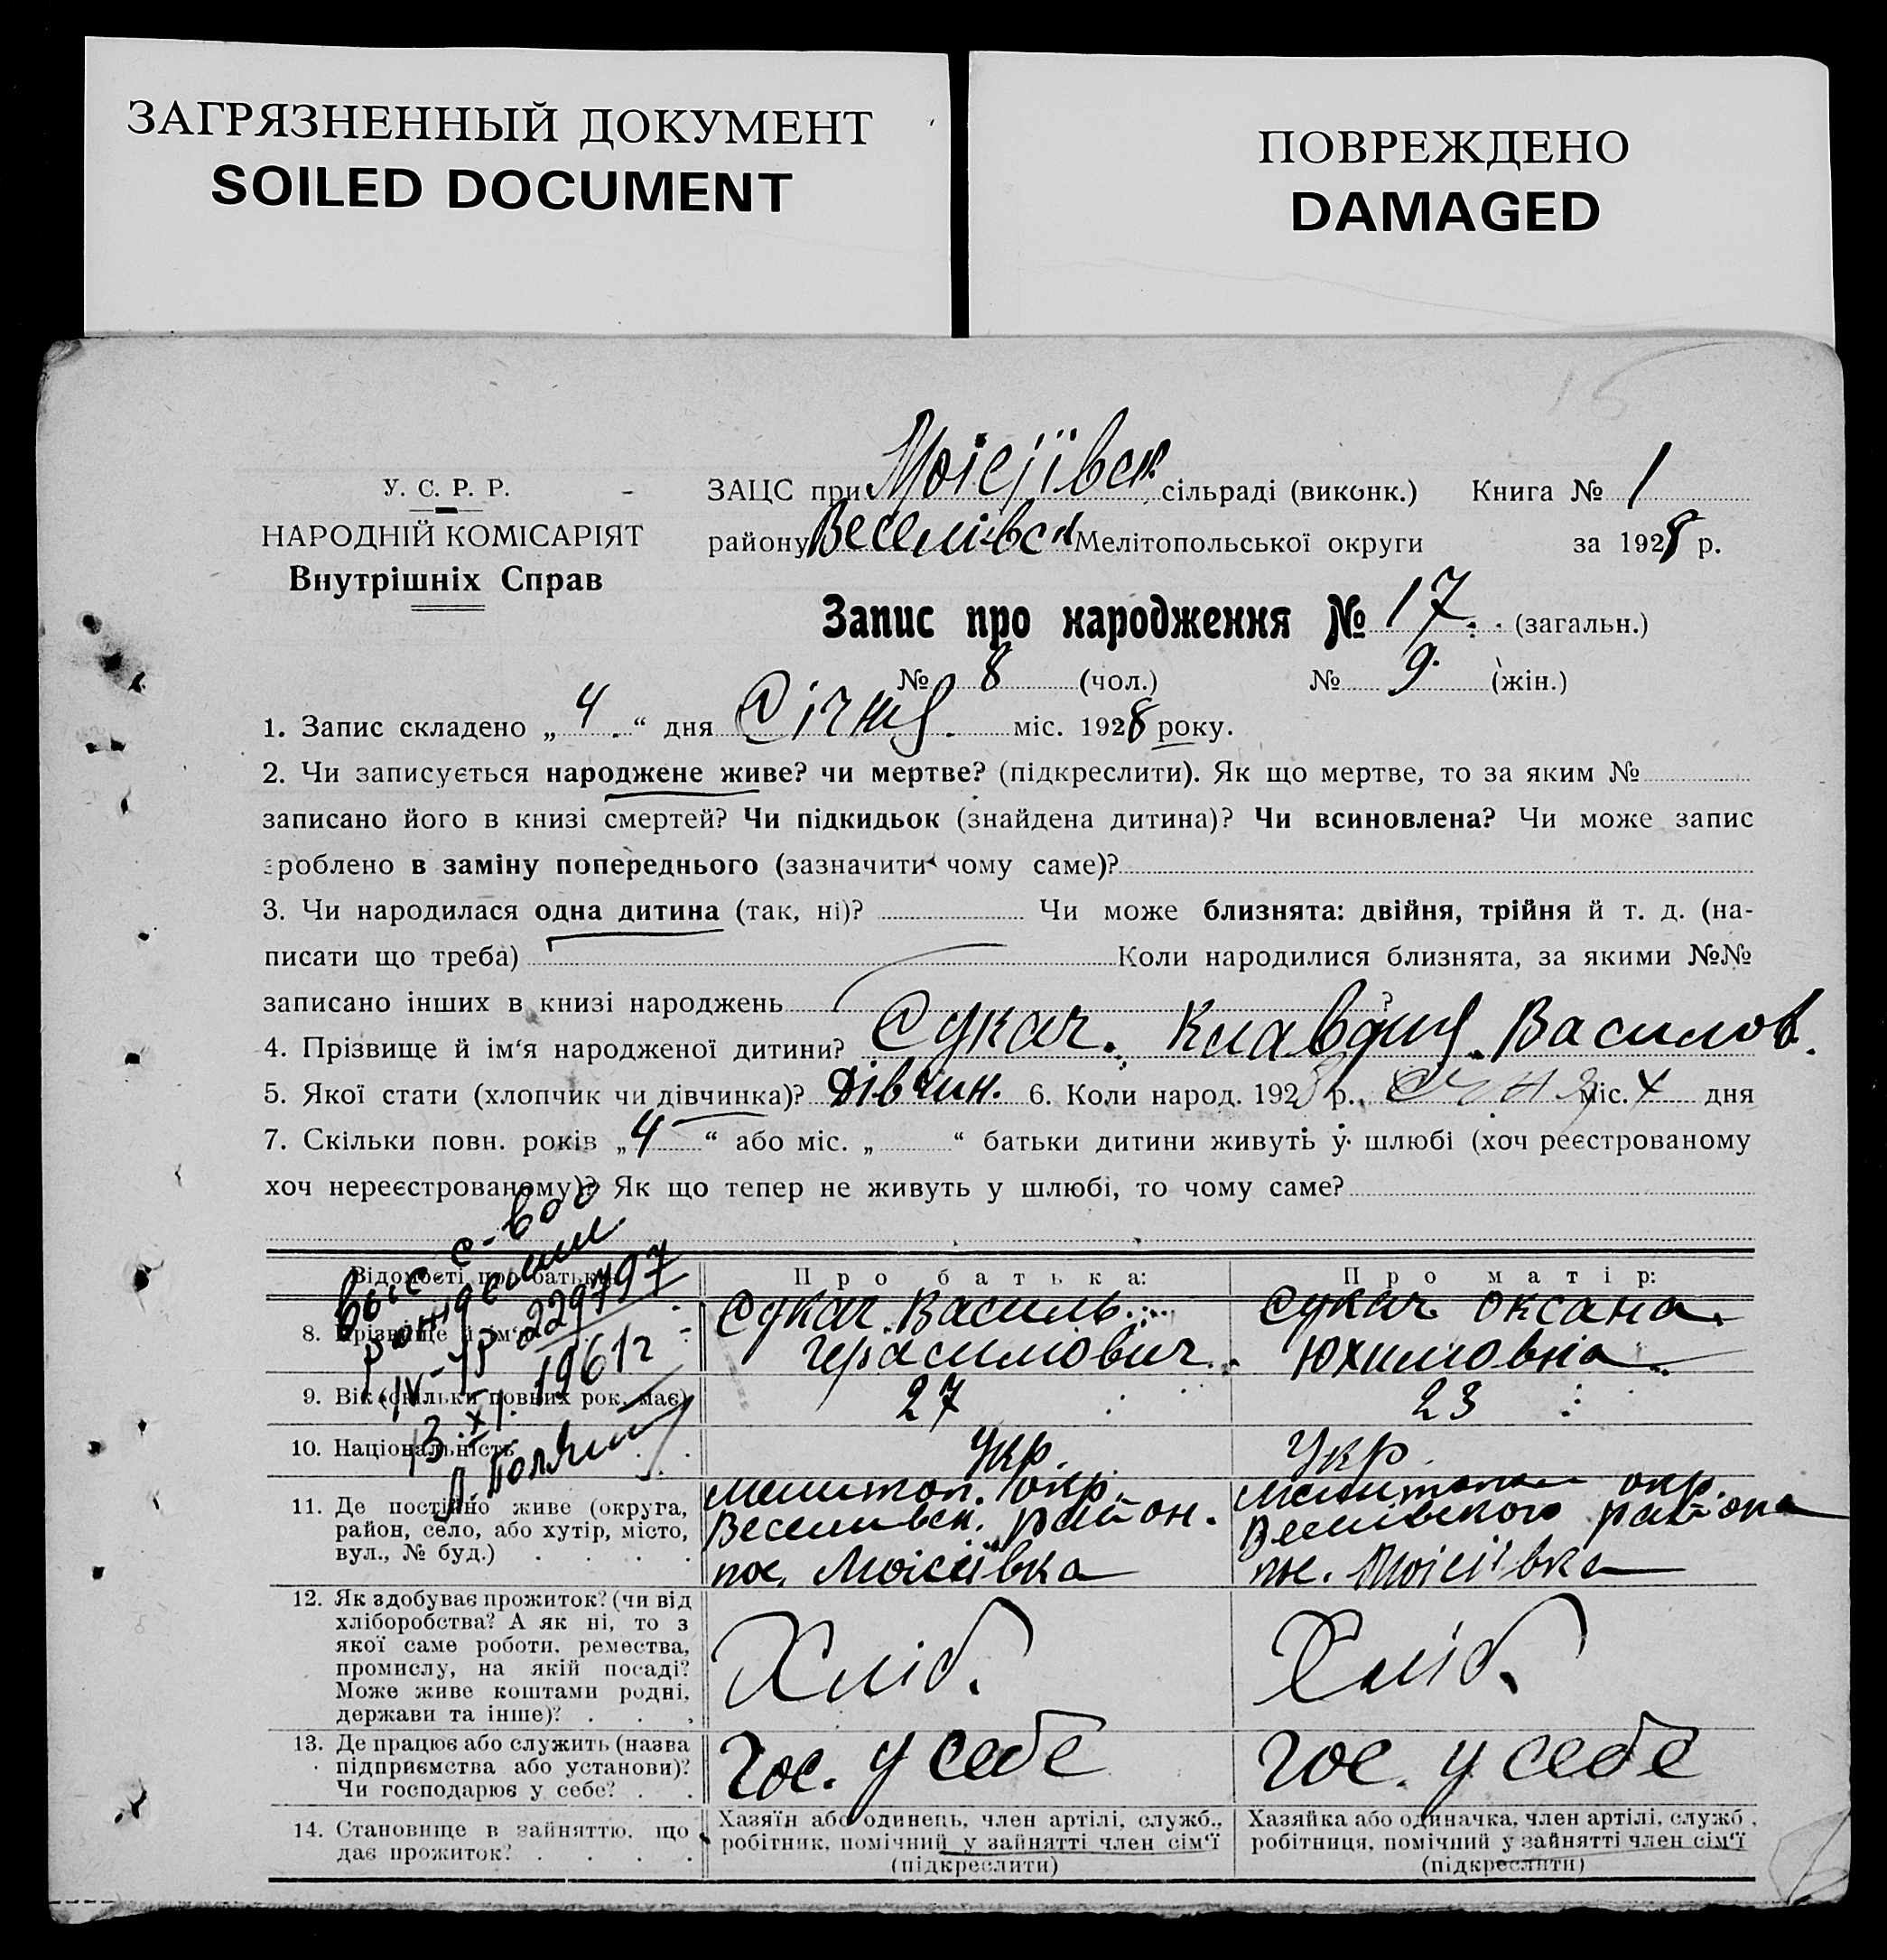 ЗАГРЯЗНЕННЫЙ ДОКУМЕНТ
SOILED DOCUMENT
ПОВРЕЖДЕНО
DAMAGED
15
У. С. Р. Р.
НАРОДНІЙ КОМІСАРІЯТ
Внутрішніх Справ
ЗАЦС при Моісеївск сільраді (виконк.) Книга № 1
району Веселівськ Мелітопольської округи за 1928 р.
Запис про народження № 17. (загальн.)
№ 8 (чол.) № 9. (жін.)
1. Запис складено „ 4 “ дня Січня. міс. 1928 року.
2. Чи записується народжене живе? чи мертве? (підкреслити). Як що мертве, то за яким №
записано його в книзі смертей? Чи підкидьок (знайдена дитина)? Чи всиновлена? Чи може запис
зроблено в заміну попереднього (зазначити чому саме)?
3. Чи народилася одна дитина (так, ні)? Чи може близнята: двійня, трійня й т. д. (на-
писати що треба) Коли народилися близнята, за якими №№
записано інших в книзі народжень ?
4. Прізвище й ім‘я народженої дитини? Сукач. Клавдия. Василов.
5. Якої стати (хлопчик чи дівчинка)? Дівчин. 6. Коли народ. 1928 р. січня міс. 4 дня
7. Скільки повн. років „4“ або міс. „ “ батьки дитини живуть у шлюбі (хоч реєстрованому
хоч нереєстрованому)? Як що тепер не живуть у шлюбі, то чому саме?
Відомості про батьків П р о б а т ь к а: П р о м а т і р:
8. Прізвище й ім‘я Сукач Василь Герасимович. Сукач Оксана Юхимовна
9. Вік (скільки повних рок. має) 27 23
10. Національність Укр. Укр
11. Де постійно живе (округа, район, село, або хутір, місто, вул., № буд.) Мелитоп. окр. Веселивск. район. пос. Моісеївка окр. Веселівского района пос. Моісеївка
12. Як здобуває прожиток? (чи від хліборобства? А як ні, то з якої саме роботи, ремества, промислу, на якій посаді? Може живе коштами родні, держави та інше)? Хліб. Хліб.
13. Де працює або служить (назва підприємства або установи)? Чи господарює у себе? Гос. у себе Гос. у себе
14. Становище в зайняттю, що дає прожиток? Хазяїн або одинець, член артілі, служб., робітник, помічний у зайнятті член сім‘ї (підкреслити) Хазяйка або одиначка, член артілі, служб., робітниця, помічний у зайнятті член сім‘ї (підкреслити)
с-во
1961г